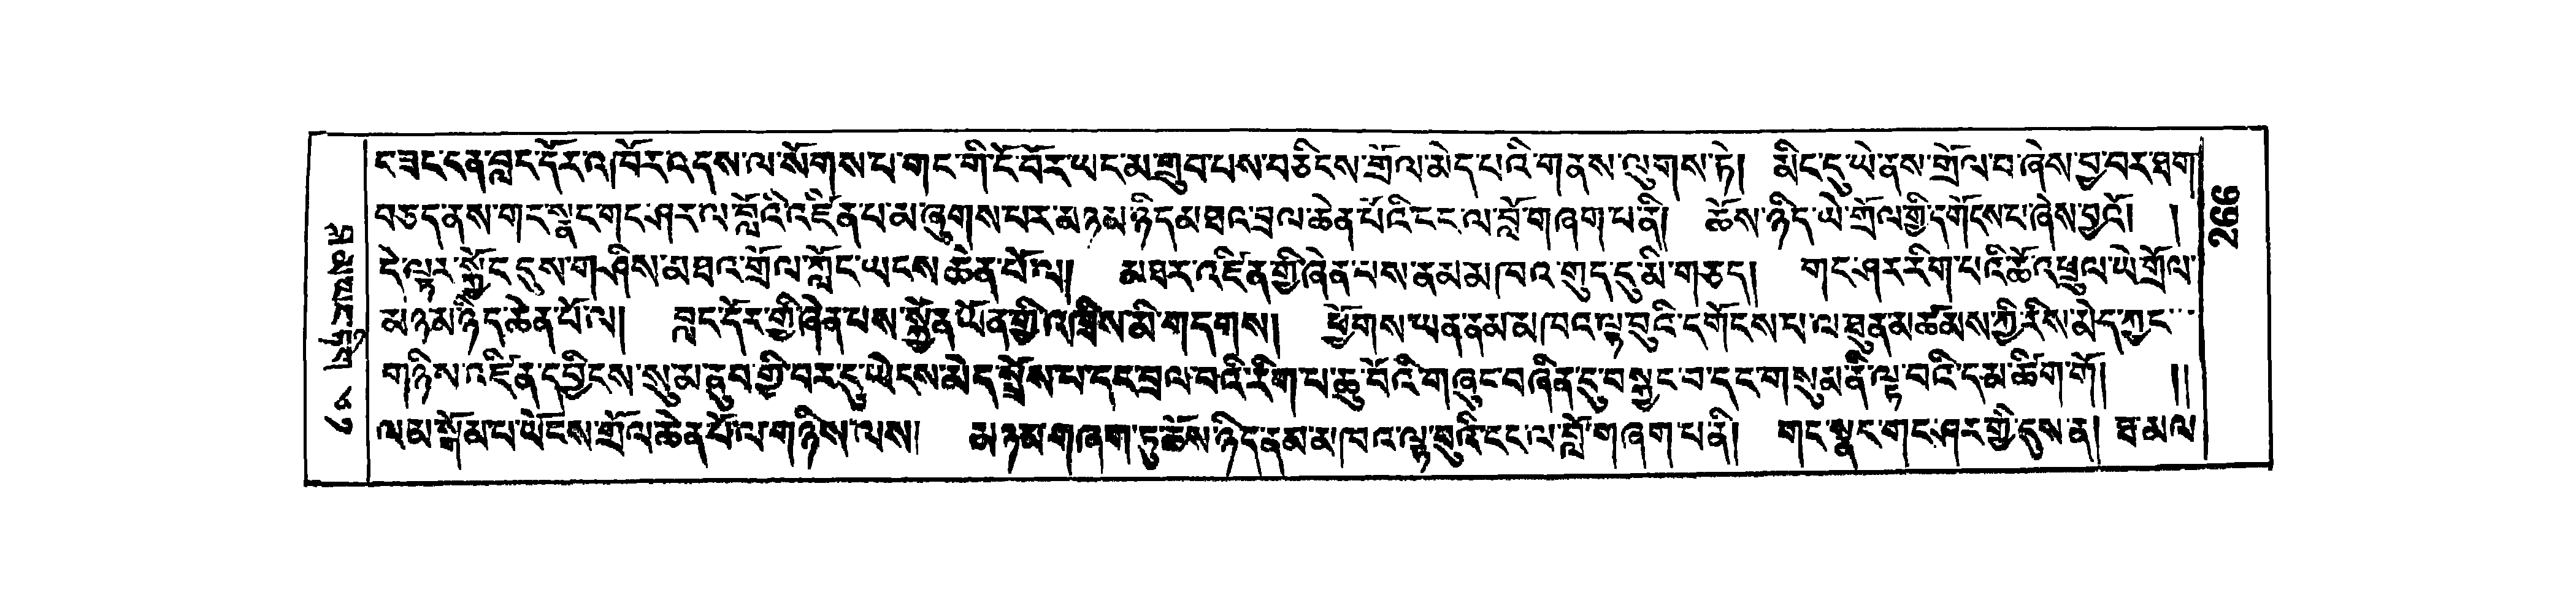 ང་ཟང་ངན་བླང་དོར་འཁོར་འདས་ལ་སོགས་པ་གང་གི་ངོ་བོར་ཡང་མ་གྲུབ་པས་བཅིངས་གྲོལ་མེད་པའི་གནས་ལུགས་ཏེ། མིང་དུ་ཡེ་ནས་གྲོལ་བ་ཞེས་བྱ་བར་ཐག
བཅད་ནས་གར་སྣང་གང་ཤར་ལ་བློའི་འཛིན་པ་མ་ཞུགས་པར་མཉམ་ཉིད་མཐའ་བྲལ་ཆེན་པོའི་ངང་ལ་བློ་གཞག་པ་ནི། ཆོས་ཉིད་ཡེ་གྲོལ་གྱི་དགོངས་པ་ཞེས་བྱའོ། །
དེ་ལྟར་སྐྱོང་དུས་གཤིས་མཐའ་གྲོལ་ཀློང་ཡངས་ཆེན་པོ་ལ། མཐར་འཛིན་གྱི་ཞེན་པས་ནམ་མཁའ་གུད་དུ་མི་གཅད། གང་ཤར་རིག་པའི་ཆོ་འཕྲུལ་ཡེ་གྲོལ་
མཉམ་ཉིད་ཆེན་པོ་ལ། བླང་དོར་གྱི་ཞེན་པས་སྐྱོན་ཡོན་གྱི་འཁྲིས་མི་གདགས། ཕྱོགས་ཡན་ནམ་མཁའ་ལྟ་བུའི་དགོངས་པ་ལ་ཐུན་མཚམས་ཀྱི་རིས་མེད་ཀྱང་
གཉིས་འཛིན་དབྱིངས་སུ་མ་ནུབ་ཀྱི་བར་དུ་ཡེངས་མེད་སྤྲོས་པ་དང་བྲལ་བའི་རིག་པ་ཆུ་བོའི་གཞུང་བཞིན་དུ་བསྐྱང་བ་དང་གསུམ་ནི་ལྟ་བའི་དམ་ཚིག་གོ། །།
ལམ་སྒོམ་པ་ཡོངས་གྲོལ་ཆེན་པོ་ལ་གཉིས་ལས། མཉམ་གཞག་ཏུ་ཆོས་ཉིད་ནམ་མཁའ་ལྟ་བུའི་ངང་ལ་བློ་གཞག་པ་ནི། གང་སྣང་གང་ཤར་གྱི་དུས་ན། ཐ་མལ
༡༡༧